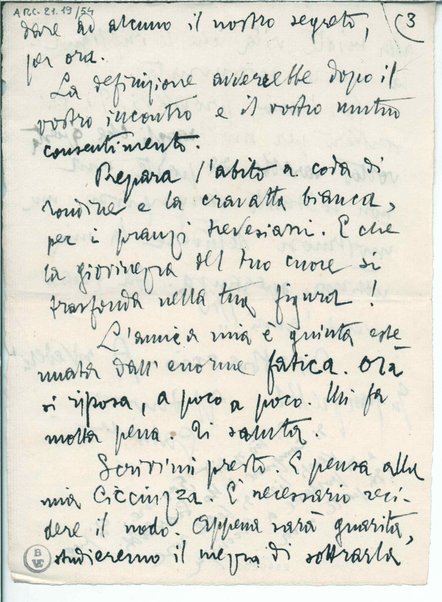 ARC. 21. 19/54
dare ad alcuno il nostro segreto,
3
per ora.
La definizione avverrebbe dopo il
vostro incontro e il vostro mutuo
consentimento.
Prepara l'abito a coda di
rondine e la cravatta bianca,
per i pranzi trevesiani. E che
la giovinezza del tuo cuore si
trasfonda nella tua figura!
L'amica mia è giunta este
nuata dall'enorme fatica. Ora
si riposa, a poco a poco. Mi fa
molta pena. Ti saluta.
Scrivimi presto. E pensa alla
mia Ciccuzza. È necessario reci-
dere il nodo. Appena sarà guarita,
studieremo il modo di sottrarla